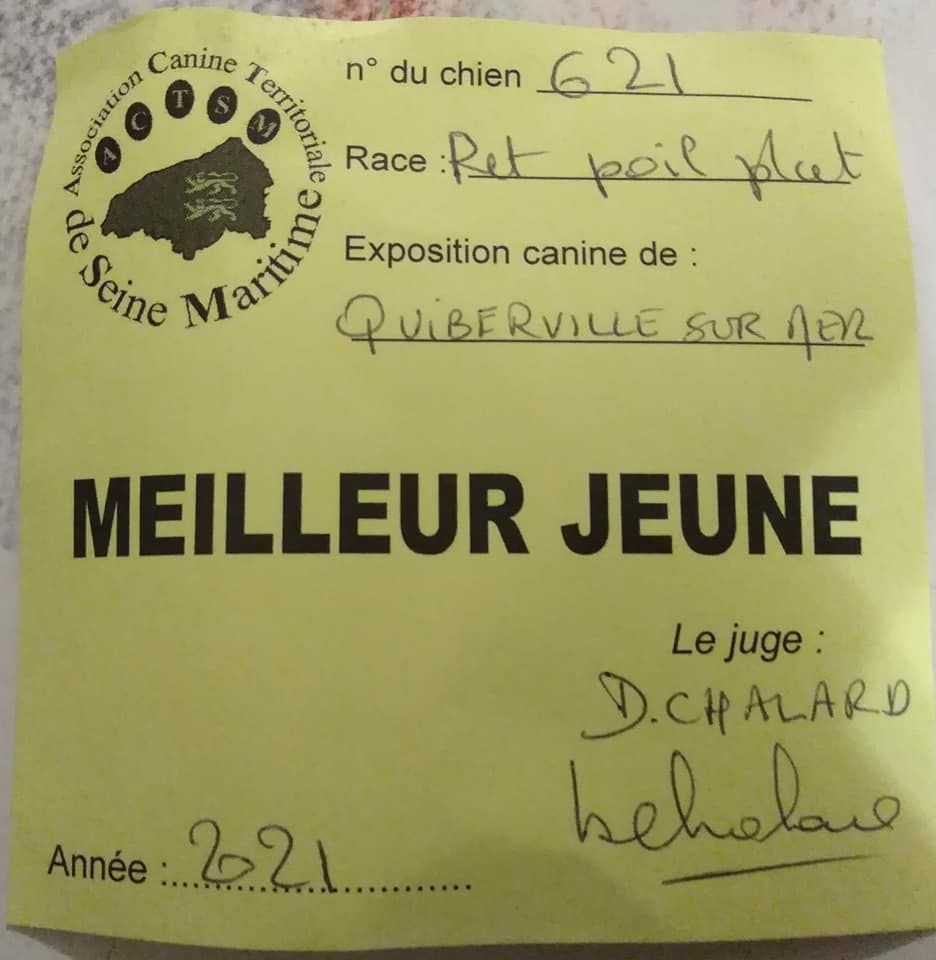 Association Canine Territoriale
de Seine Maritime
A C T S M
n° du chien 621
Race : Ret poil plat
Exposition canine de :
QUIBERVILLE SUR MER
MEILLEUR JEUNE
Le juge :
D. CHALARD
Année : 2021